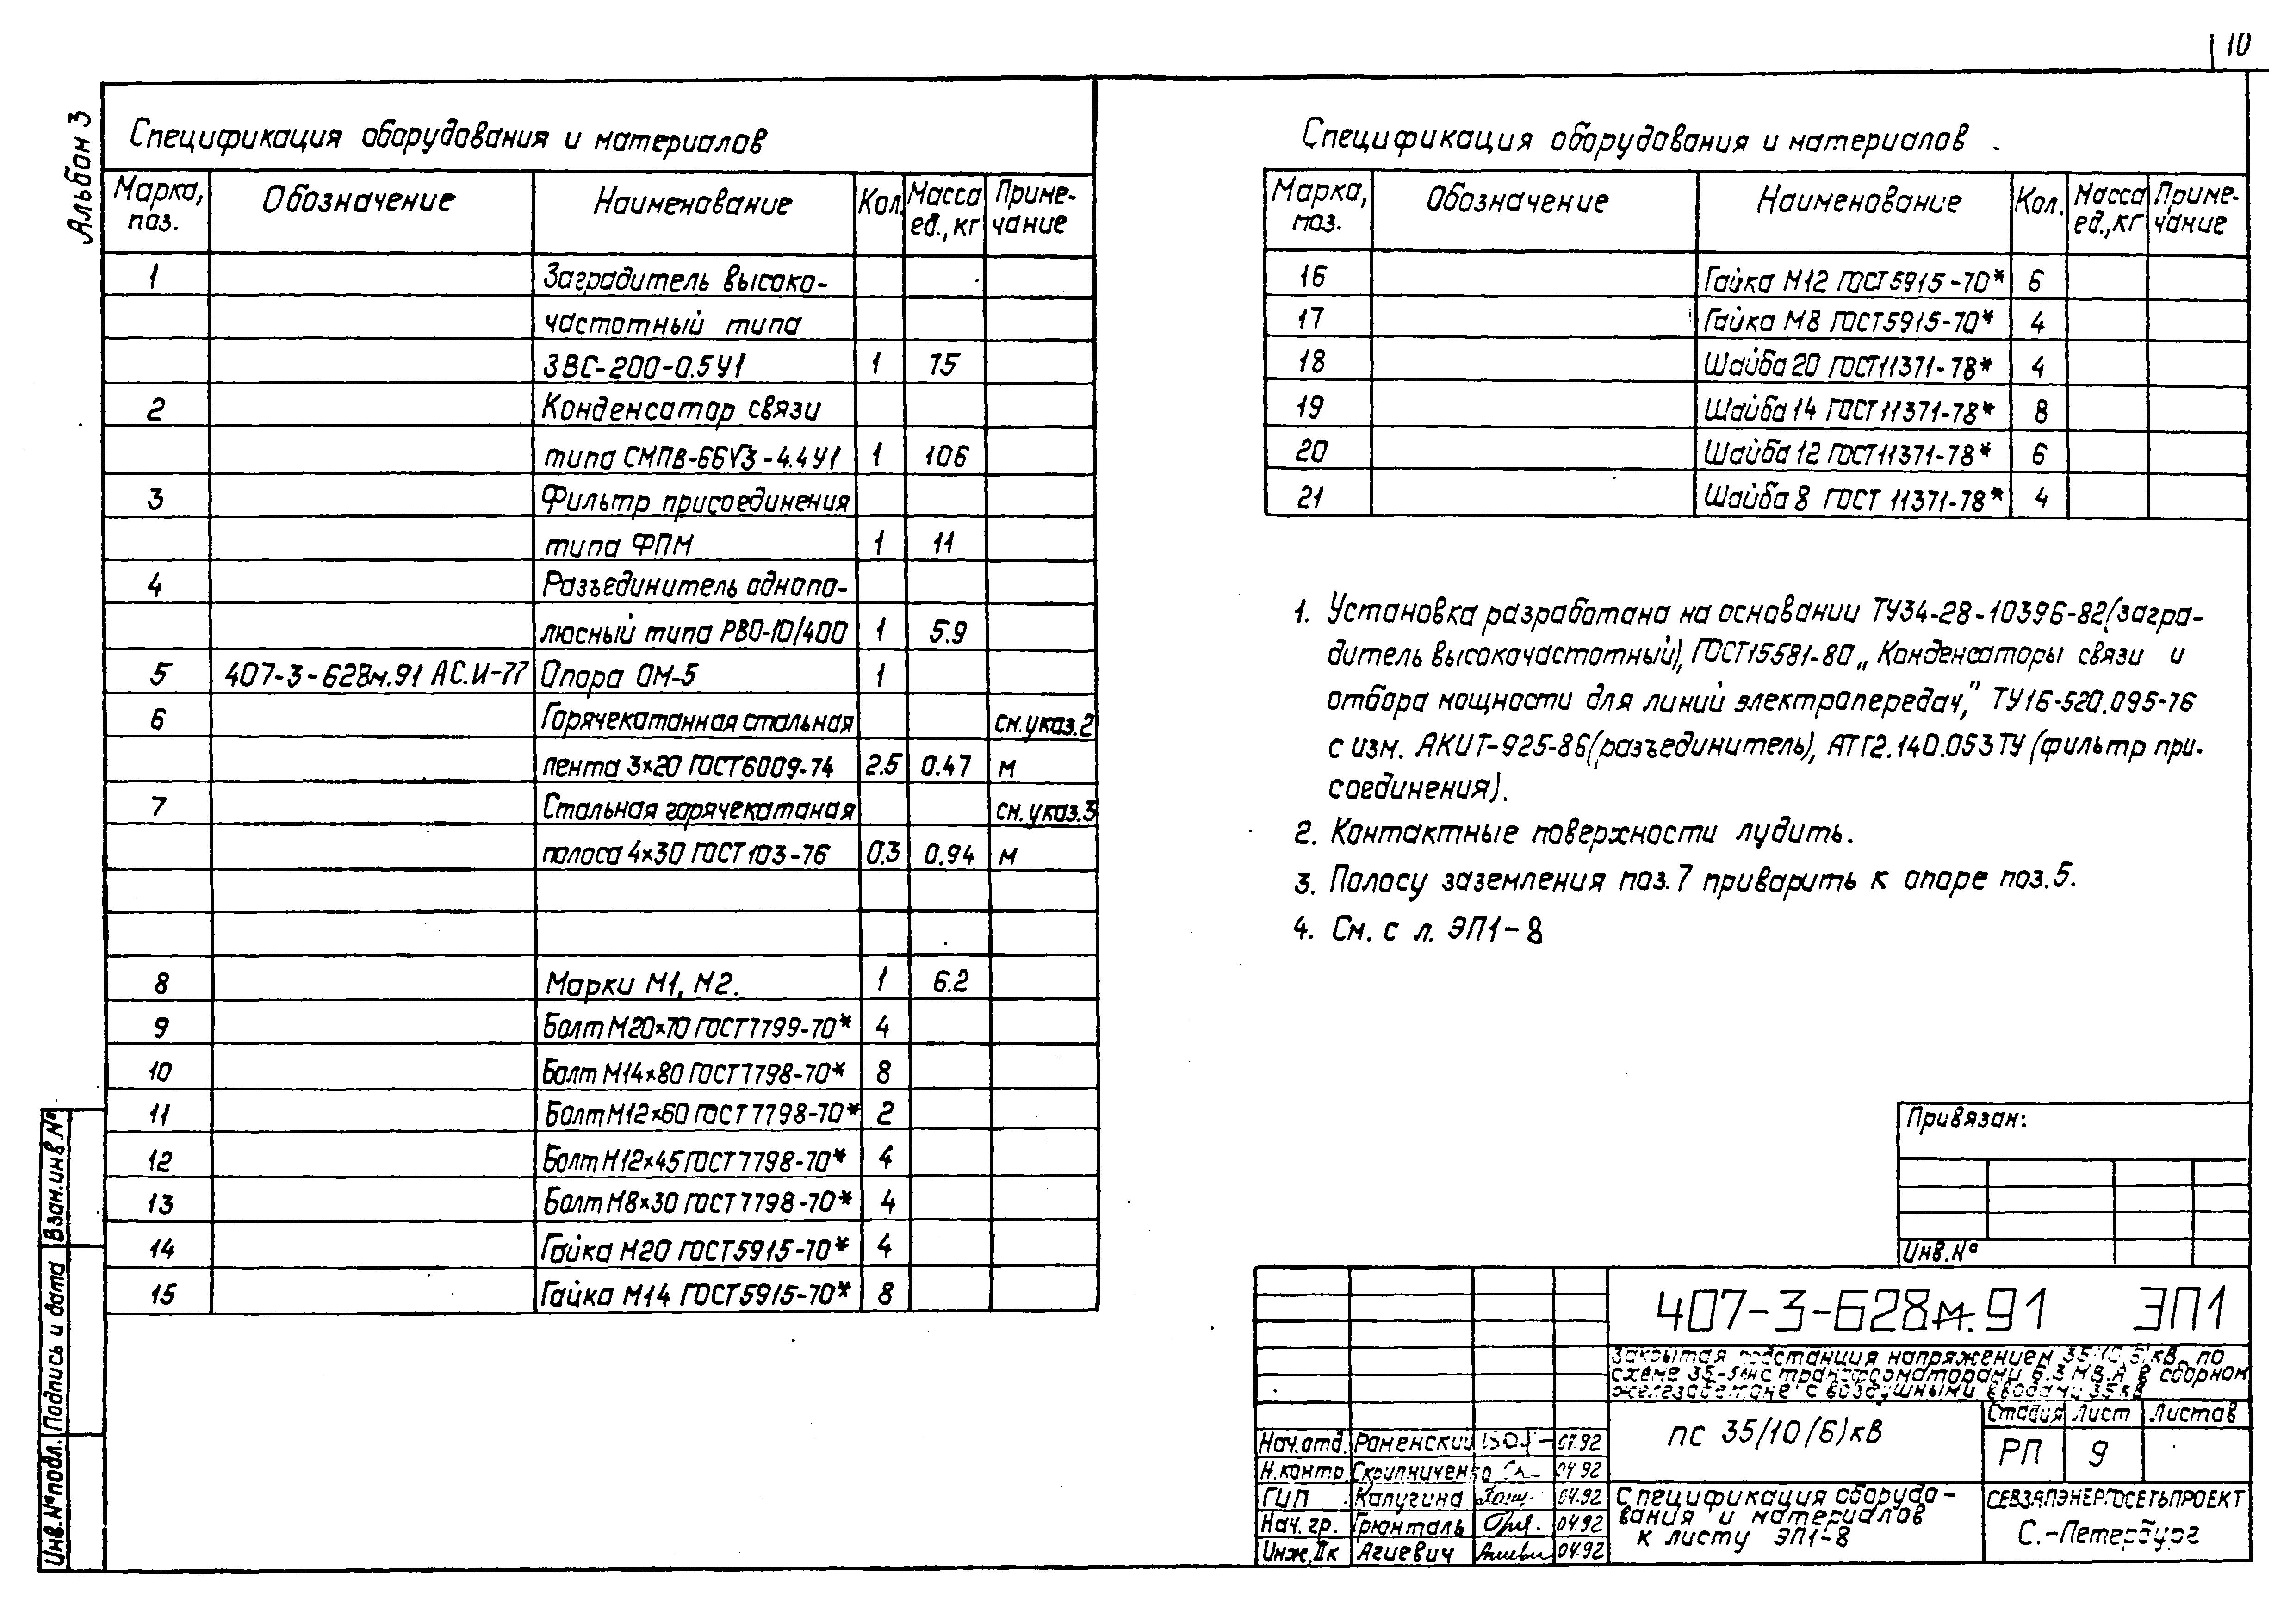 10
Альбом 3
Спецификация оборудования и материалов
Марка, поз. Обозначение Наименование Кол. Масса ед., кг Примечание
1 Заградитель высоко-
частотный типа
ЗВС-200-0.5У1 1 75
2 Конденсатор связи
типа СМПВ-66√3-4.4У1 1 106
3 Фильтр присоединения
типа ФПМ 1 11
4 Разъединитель однопо-
люсный типа РВО-10/400 1 5.9
5 407-3-628м.91 АС.И-77 Опора ОМ-5 1
6 Горячекатанная стальная см. указ.2
лента 3×20 ГОСТ6009-74 2.5 0.47 м
7 Стальная горячекатаная см. указ.3
полоса 4×30 ГОСТ103-76 0.3 0.94 м
8 Марки М1, М2. 1 6.2
9 Болт М20×70 ГОСТ7799-70* 4
10 Болт М14×80 ГОСТ7798-70* 8
11 Болт М12×60 ГОСТ7798-70* 2
12 Болт М12×45 ГОСТ7798-70* 4
13 Болт М8×30 ГОСТ7798-70* 4
14 Гайка М20 ГОСТ5915-70* 4
15 Гайка М14 ГОСТ5915-70* 8
Спецификация оборудования и материалов
Марка, поз. Обозначение Наименование Кол. Масса ед., кг Примечание
16 Гайка М12 ГОСТ5915-70* 6
17 Гайка М8 ГОСТ5915-70* 4
18 Шайба 20 ГОСТ11371-78* 4
19 Шайба 14 ГОСТ11371-78* 8
20 Шайба 12 ГОСТ11371-78* 6
21 Шайба 8 ГОСТ 11371-78* 4
1. Установка разработана на основании ТУ34-28-10396-82(загра-
дитель высокочастотный), ГОСТ15581-80 „Конденсаторы связи и
отбора мощности для линий электропередач," ТУ16-520.095-76
с изм. АКИТ-925-86(разъединитель), АТГ2.140.053ТУ (фильтр при-
соединения).
2. Контактные поверхности лудить.
3. Полосу заземления поз.7 приварить к опоре поз.5.
4. См. с л. ЭП1-8
Привязан:
Инв.№
407-3-628м.91 ЭП1
Закрытая подстанция напряжением 35/10(6) кВ по
схеме 35- с трансформаторами 6.3 МВ.А в сборном
железобетоне с воздушными вводами 35кВ
ПС 35/10(6)кВ
Стадия Лист Листов
РП 9
Нач.отд. Раменский 07.92
Н.контр. Скрипниченко 04.92
ГИП Калугина 04.92
Нач. гр. Грюнталь 04.92
Инж.IIк Агиевич 04.92
Спецификация оборудо-
вания и материалов
к листу ЭП1-8
СЕВЗАПЭНЕРГОСЕТЬПРОЕКТ
С.-Петербург
Взам.инв.№
Подпись и дата
Инв.№подл.